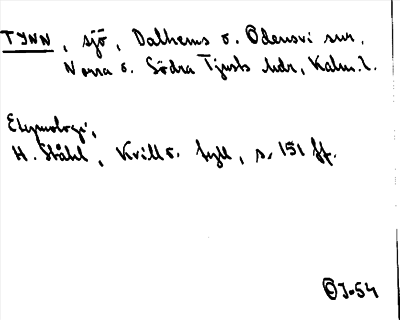 TYNN, sjö, Dalhems o. Odensvi snr,
Norra o. Södra Tjusts hdr, Kalm. l.
Etymologi,
H. Ståhl, Kvill o. Tyll, s. 151 ff.
ÖJ-54